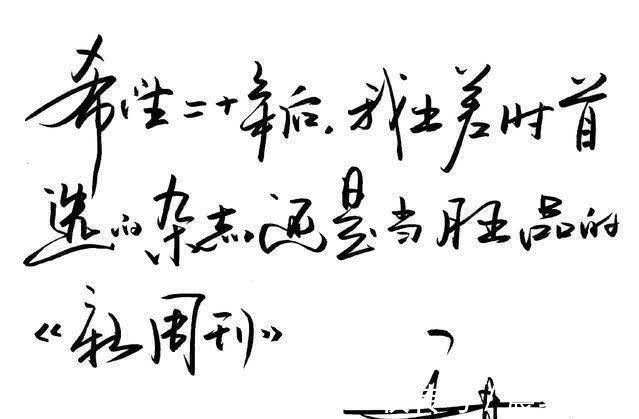 希望二十年后，我出差时首
选的杂志还是当旺品的
《新周刊》